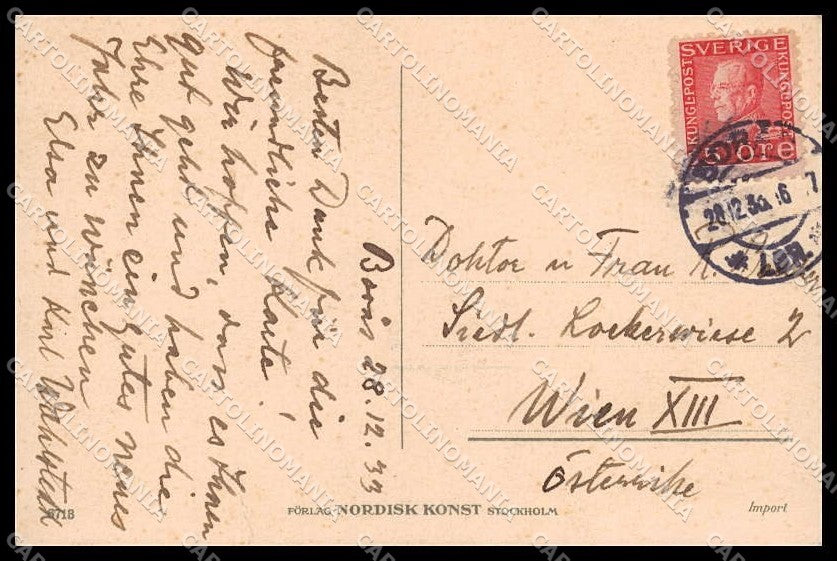 Borås 28.12.33
Besten Dank für die
freundliche Karte!
Wir hoffen, dass es Ihnen
gut geht und haben die
Ehre Ihnen ein gutes neues
Jahr zu wünschen
Elsa und Karl Wahlstedt
SVERIGE
KUNGL·POST
KUNGL·POST
5 ÖRE
28.12.33
LBR.
Doktor u Frau
Siedl. Lockerwiese 2
Wien XIII
Österrike
6718
FÖRLAG NORDISK KONST STOCKHOLM
Import
CARTOLINOMANIA